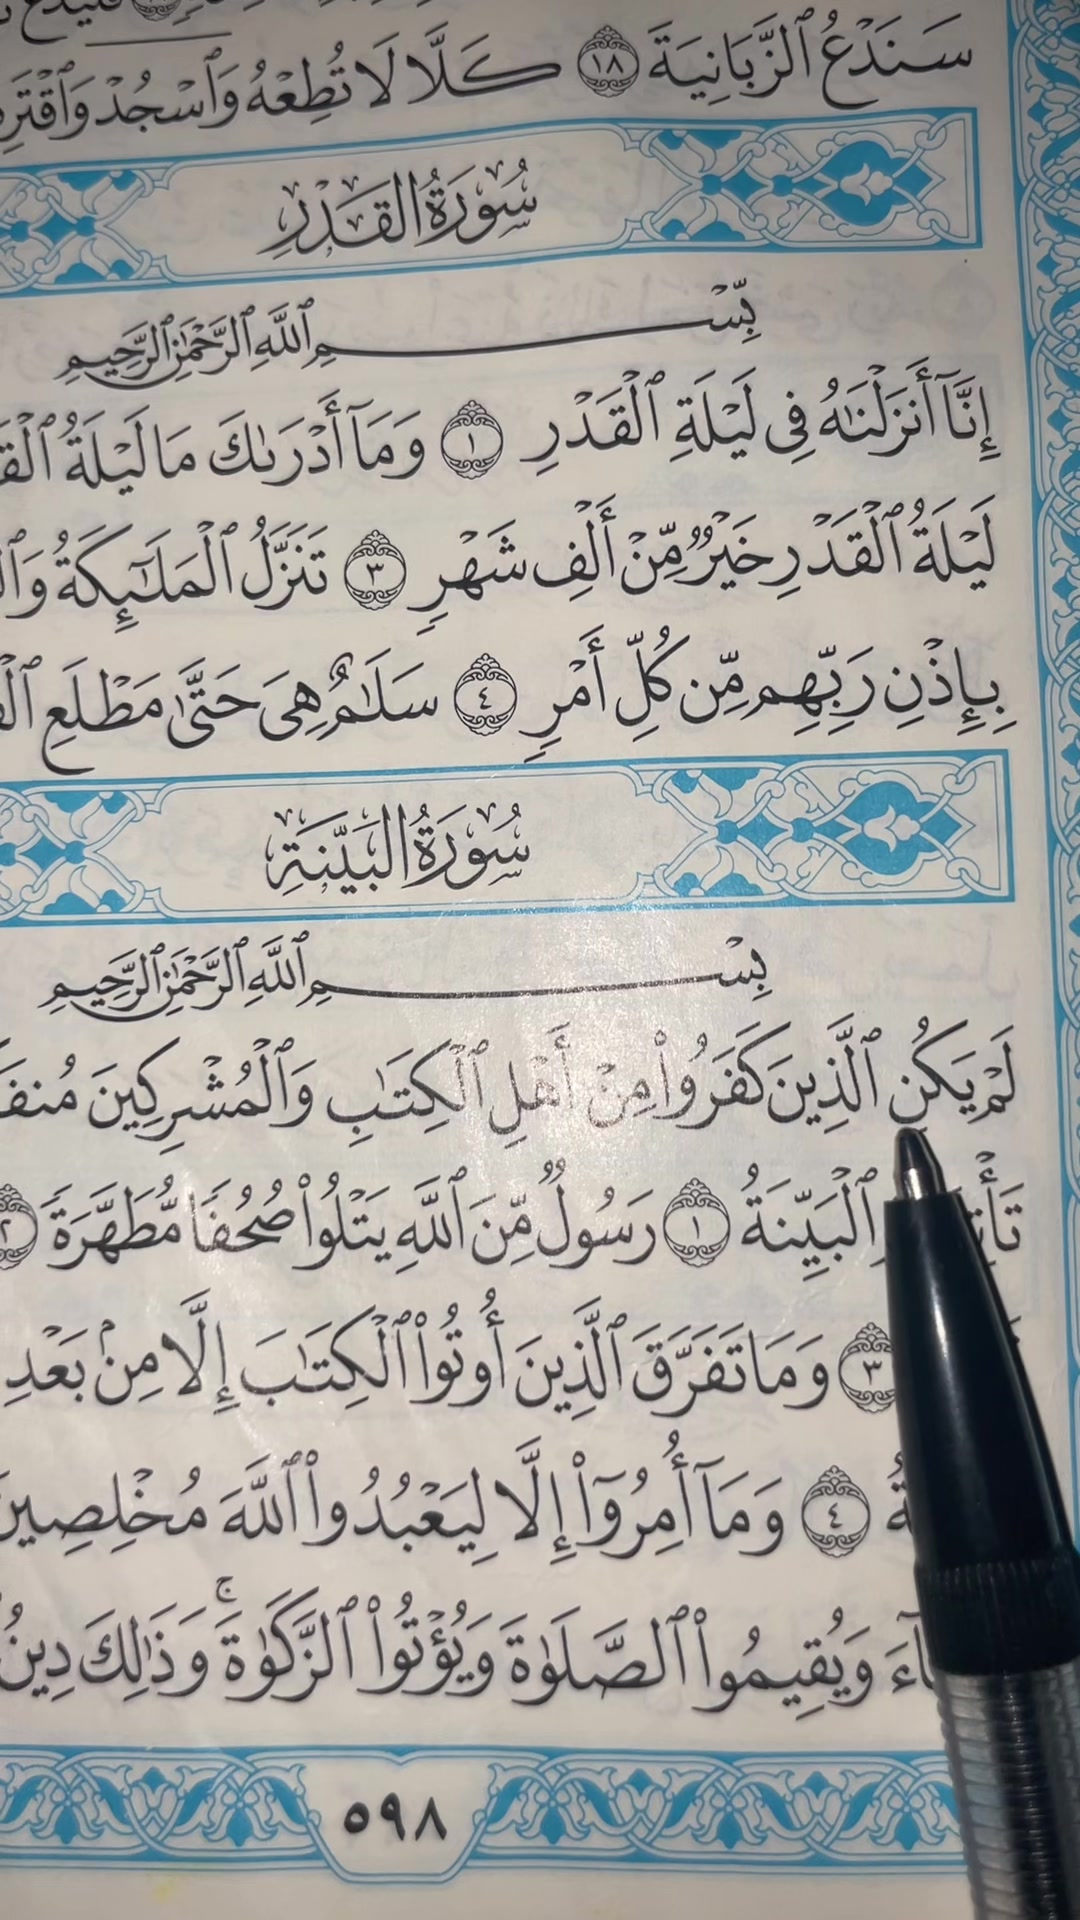 سَنَدْعُ ٱلزَّبَانِيَةَ ١٨ كَلَّا لَا تُطِعْهُ وَٱسْجُدْ
سُورَةُ القَدْرِ
بِّسْمِ ٱللَّهِ ٱلرَّحْمَٰنِ ٱلرَّحِيمِ
إِنَّآ أَنزَلْنَٰهُ فِى لَيْلَةِ ٱلْقَدْرِ ١ وَمَآ أَدْرَىٰكَ مَا لَيْلَةُ
لَيْلَةُ ٱلْقَدْرِ خَيْرٌ مِّنْ أَلْفِ شَهْرٍ ٣ تَنَزَّلُ ٱلْمَلَٰٓئِكَةُ
بِإِذْنِ رَبِّهِم مِّن كُلِّ أَمْرٍ ٤ سَلَٰمٌ هِىَ حَتَّىٰ مَطْلَعِ
سُورَةُ البَيِّنَةِ
بِسْمِ ٱللَّهِ ٱلرَّحْمَٰنِ ٱلرَّحِيمِ
لَمْ يَكُنِ ٱلَّذِينَ كَفَرُوا۟ مِنْ أَهْلِ ٱلْكِتَٰبِ وَٱلْمُشْرِكِينَ
ٱلْبَيِّنَةُ ١ رَسُولٌ مِّنَ ٱللَّهِ يَتْلُوا۟ صُحُفًا مُّطَهَّرَةً ٢
٣ وَمَا تَفَرَّقَ ٱلَّذِينَ أُوتُوا۟ ٱلْكِتَٰبَ إِلَّا مِنۢ بَعْدِ
٤ وَمَآ أُمِرُوٓا۟ إِلَّا لِيَعْبُدُوا۟ ٱللَّهَ مُخْلِصِينَ
وَيُقِيمُوا۟ ٱلصَّلَوٰةَ وَيُؤْتُوا۟ ٱلزَّكَوٰةَ ۚ وَذَٰلِكَ دِينُ
٥٩٨